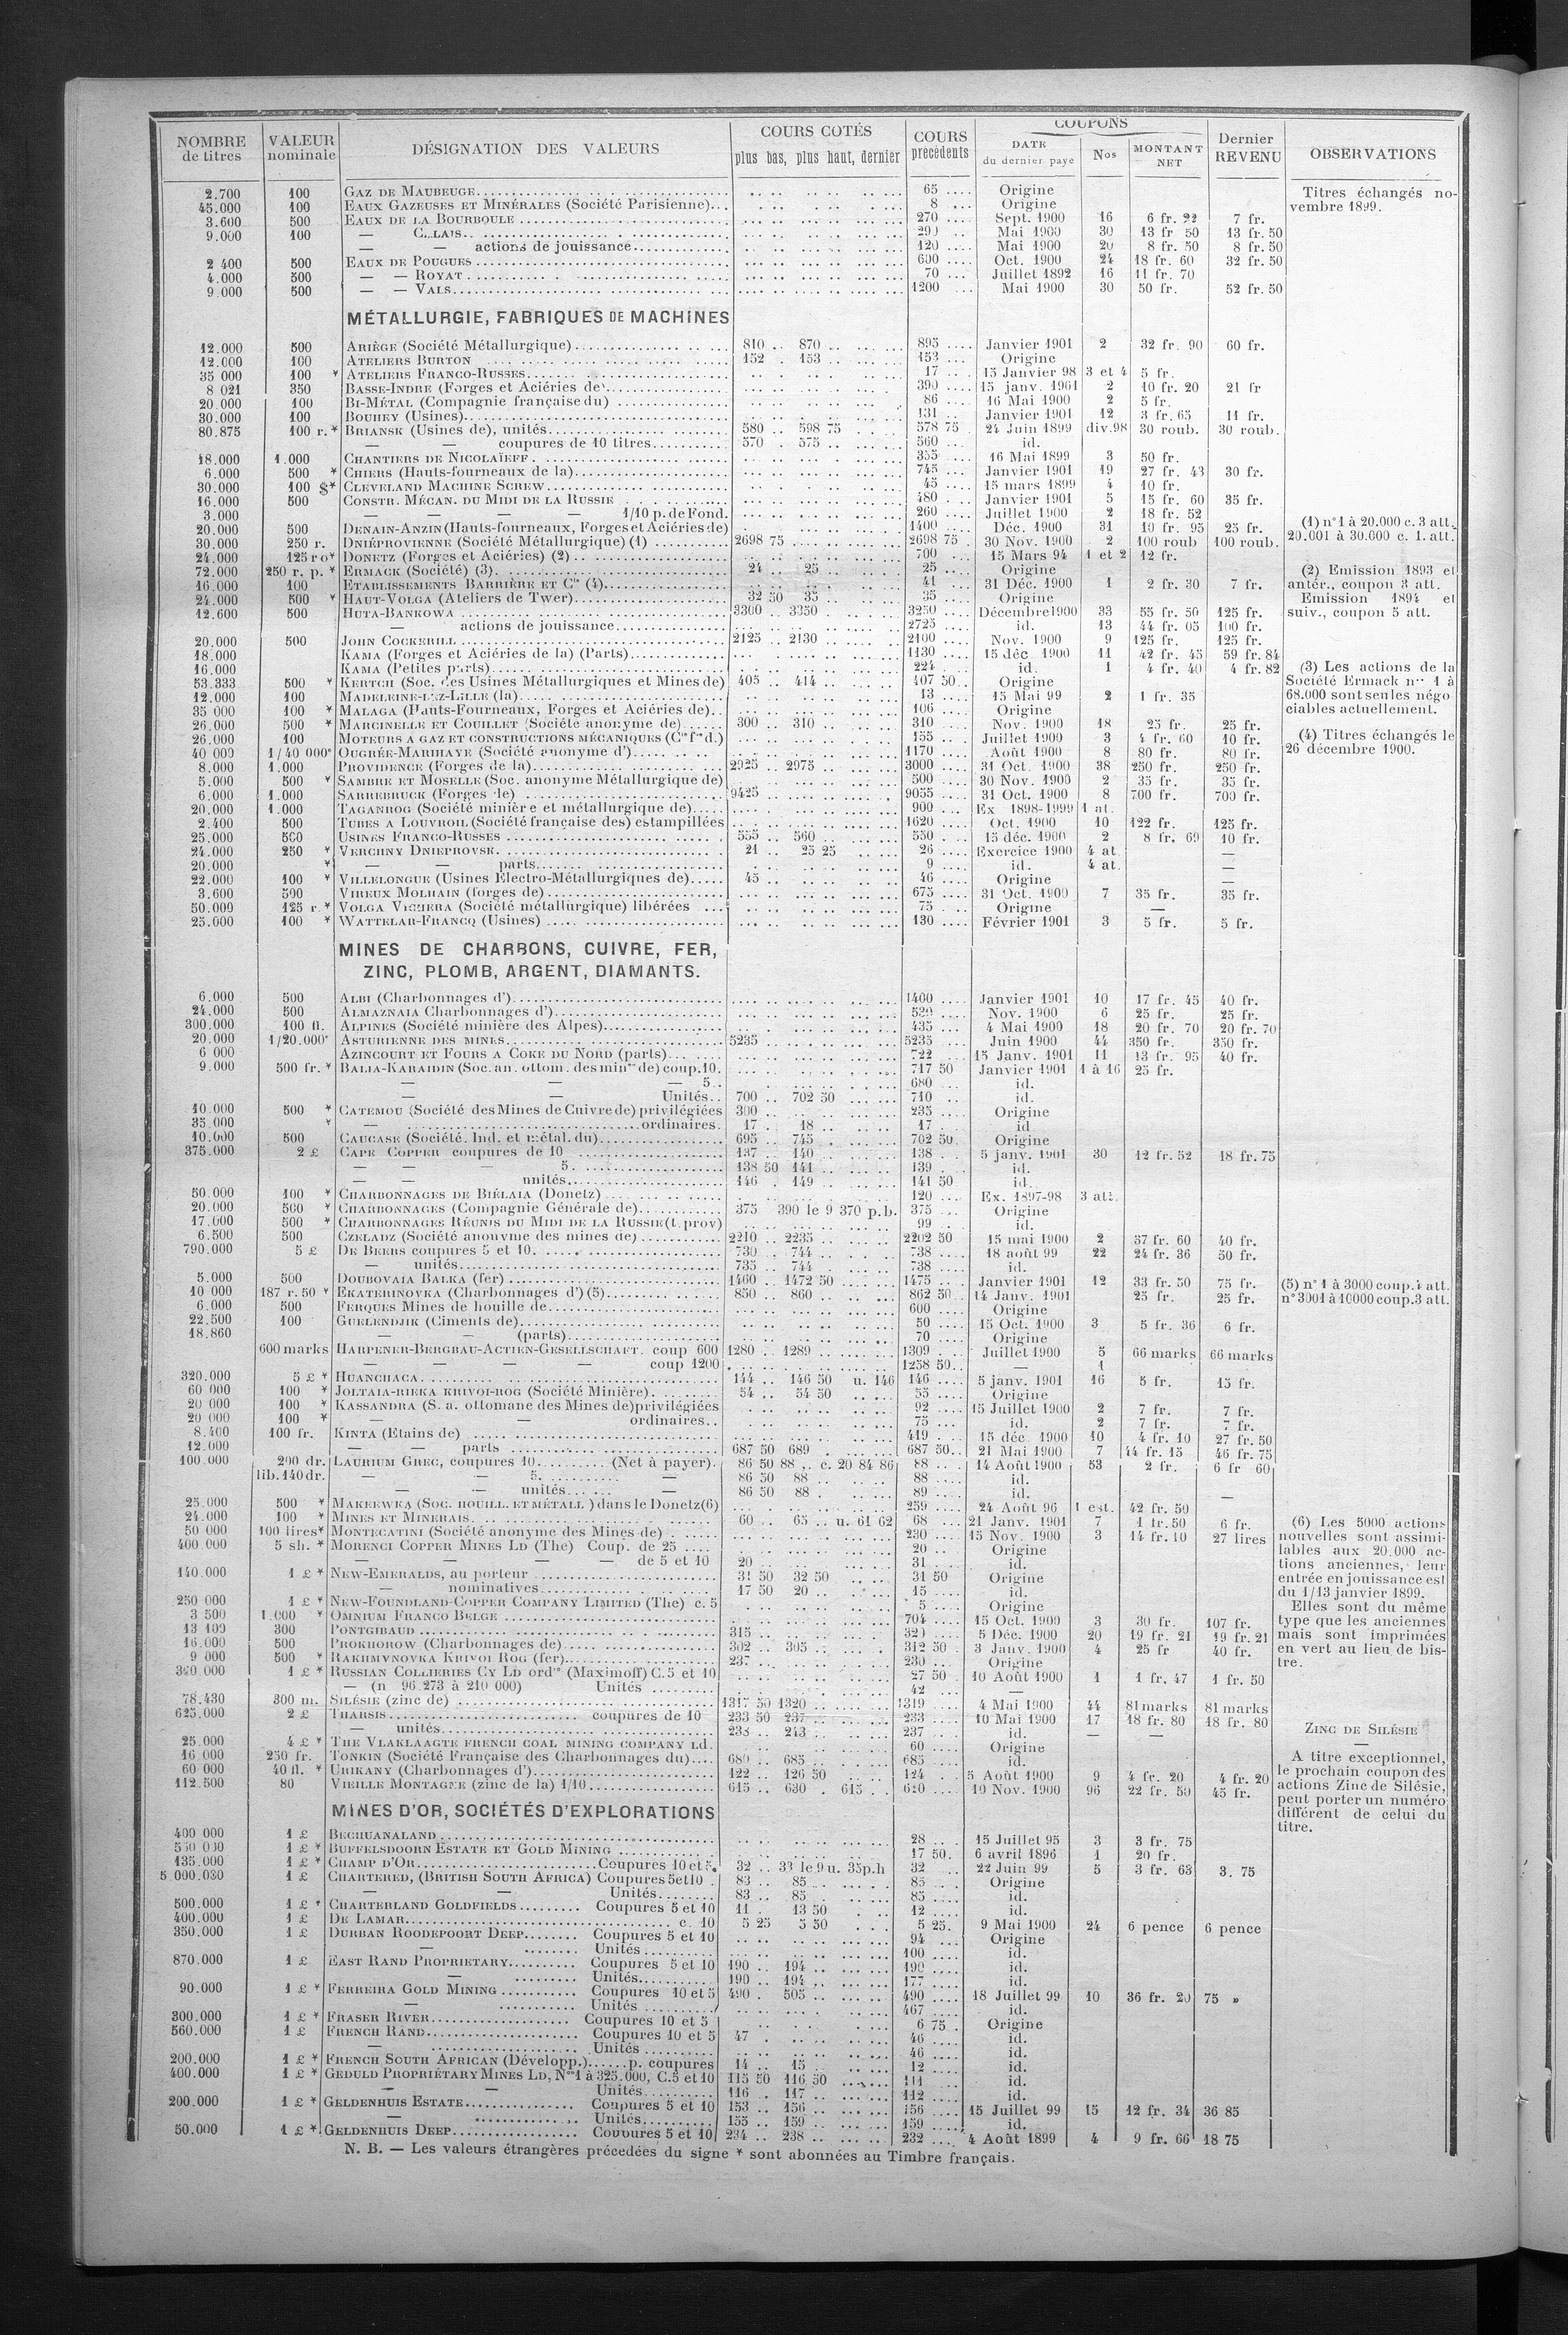 NOMBRE de titres | VALEUR nominale | DÉSIGNATION DES VALEURS | COURS COTÉS plus bas, plus haut, dernier | COURS précédents | COUPONS DATE du dernier paye | Nos | MONTANT NET | Dernier REVENU | OBSERVATIONS
2.700 | 100 | GAZ DE MAUBEUGE | 65 | Origine | Titres échangés no-
45.000 | 100 | EAUX GAZEUSES ET MINÉRALES (Société Parisienne) | 8 | Origine | vembre 1899.
3.600 | 500 | EAUX DE LA BOURBOULE | 270 | Sept. 1900 | 16 | 6 fr. 22 | 7 fr.
9.000 | 100 | — | Mai 1900 | 30 | 13 fr 50 | 13 fr. 50
— — actions de jouissance | 120 | Mai 1900 | 20 | 8 fr. 50 | 8 fr. 50
2 400 | 500 | EAUX DE POUGUES | 600 | Oct. 1900 | 24 | 18 fr. 60 | 32 fr. 50
4.000 | 500 | — — ROYAT | 70 | Juillet 1892 | 16 | 11 fr. 70
9.000 | 500 | — — VALS | 1200 | Mai 1900 | 30 | 50 fr. | 52 fr. 50
MÉTALLURGIE, FABRIQUES DE MACHINES
12.000 | 500 | ARIÈGE (Société Métallurgique) | 810 | 870 | 895 | Janvier 1901 | 2 | 32 fr. 90 | 60 fr.
12.000 | 100 | ATELIERS BURTON | 152 | 153 | 153 | Origine
35 000 | 100 * | ATELIERS FRANCO-RUSSES | 17 | 15 Janvier 98 | 3 et 4 | 5 fr.
8 021 | 350 | BASSE-INDRE (Forges et Aciéries de) | 390 | 15 janv. 1901 | 2 | 10 fr. 20 | 21 fr
20.000 | 100 | BI-MÉTAL (Compagnie française du) | 86 | 16 Mai 1900 | 2 | 5 fr.
30.000 | 100 | BOUHEY (Usines) | 131 | Janvier 1901 | 12 | 3 fr. 65 | 11 fr.
80.875 | 100 r. * | BRIANSK (Usines de), unités | 580 | 598 75 | 578 75 | 24 Juin 1899 | div.98 | 30 roub. | 30 roub.
— — coupures de 10 titres | 570 | 575 | 560 | id.
18.000 | 1.000 | CHANTIERS DE NICOLAÏEFF | 355 | 16 Mai 1899 | 3 | 50 fr.
6.000 | 500 * | CHIERS (Hauts-fourneaux de la) | 745 | Janvier 1901 | 19 | 27 fr. 43 | 30 fr.
30.000 | 100 $* | CLEVELAND MACHINE SCREW | 45 | 15 mars 1899 | 4 | 10 fr.
16.000 | 500 | CONSTR. MÉCAN. DU MIDI DE LA RUSSIE | 480 | Janvier 1901 | 5 | 15 fr. 60 | 35 fr.
3.000 | — — — — 1/10 p. de Fond. | 260 | Juillet 1900 | 2 | 18 fr. 52
20.000 | 500 | DENAIN-ANZIN (Hauts-fourneaux, Forges et Aciéries de) | 1400 | Déc. 1900 | 31 | 10 fr. 95 | 25 fr. | (1) n° 1 à 20.000 c. 3 att.
30.000 | 250 r. | DNIÉPROVIENNE (Société Métallurgique) (1) | 2698 75 | 2698 75 | 30 Nov. 1900 | 2 | 100 roub | 100 roub. | 20.001 à 30.000 c. 1. att.
24.000 | 125 ro* | DONETZ (Forges et Aciéries) (2) | 700 | 15 Mars 94 | 1 et 2 | 12 fr.
72.000 | 250 r. p. * | ERMACK (Société) (3) | 24 | 25 | 25 | Origine | (2) Emission 1893 et
16.000 | 100 | ÉTABLISSEMENTS BARRIÈRE ET Cie (4) | 41 | 31 Déc. 1900 | 1 | 2 fr. 30 | 7 fr. | antér., coupon 3 att.
24.000 | 500 * | HAUT-VOLGA (Ateliers de Twer) | 32 50 | 35 | 35 | Origine | Emission 1894 et
12.600 | 500 | HUTA-BANKOWA | 3300 | 3350 | 3250 | Décembre 1900 | 33 | 55 fr. 50 | 125 fr. | suiv., coupon 5 att.
— actions de jouissance | 2725 | id. | 13 | 44 fr. 05 | 100 fr.
20.000 | 500 | JOHN COCKERILL | 2125 | 2130 | 2100 | Nov. 1900 | 9 | 125 fr. | 125 fr.
18.000 | KAMA (Forges et Aciéries de la) (Parts) | 1130 | 15 déc. 1900 | 11 | 42 fr. 45 | 59 fr. 84
16.000 | KAMA (Petites parts) | 224 | id. | 1 | 4 fr. 40 | 4 fr. 82 | (3) Les actions de la
53.333 | 500 * | KERTCH (Soc. des Usines Métallurgiques et Mines de) | 405 | 414 | 407 50 | Origine | Société Ermack nos 1 à
12.000 | 100 | MADELEINE-LEZ-LILLE (la) | 13 | 15 Mai 99 | 2 | 1 fr. 35 | 68.000 sont seules négo
35 000 | 100 * | MALAGA (Hauts-Fourneaux, Forges et Aciéries de) | 106 | Origine | ciables actuellement.
26.000 | 500 * | MARCINELLE ET COUILLET (Société anonyme de) | 300 | 310 | 310 | Nov. 1900 | 18 | 25 fr. | 25 fr.
26.000 | 100 | MOTEURS A GAZ ET CONSTRUCTIONS MÉCANIQUES (Cie fse d.) | 155 | Juillet 1900 | 3 | 4 fr. 60 | 10 fr. | (4) Titres échangés le
40 000 | 1/40 000e | OUGRÉE-MARIHAYE (Société anonyme d') | 1170 | Août 1900 | 8 | 80 fr. | 80 fr. | 26 décembre 1900.
8.000 | 1.000 | PROVIDENCE (Forges de la) | 2925 | 2975 | 3000 | 31 Oct. 1900 | 38 | 250 fr. | 250 fr.
5.000 | 500 * | SAMBRE ET MOSELLE (Soc. anonyme Métallurgique de) | 500 | 30 Nov. 1900 | 2 | 35 fr. | 35 fr.
6.000 | 1.000 | SARREBRUCK (Forges de) | 9425 | 9055 | 31 Oct. 1900 | 8 | 700 fr. | 700 fr.
20.000 | 1.000 | TAGANROG (Société minière et métallurgique de) | 900 | Ex 1898-1999 | 1 at.
2.400 | 500 | TUBES A LOUVROIL (Société française des) estampillées | 1620 | Oct. 1900 | 10 | 122 fr. | 125 fr.
25.000 | 500 | USINES FRANCO-RUSSES | 555 | 560 | 550 | 15 déc. 1900 | 2 | 8 fr. 69 | 10 fr.
24.000 | 250 * | VERCHNY DNIEPROVSK | 21 | 25 25 | 26 | Exercice 1900 | 4 at | —
20.000 | * | — — parts | 9 | id. | 4 at. | —
22.000 | 100 * | VILLELONGUE (Usines Électro-Métallurgiques de) | 45 | 46 | Origine | —
3.600 | 500 | VIREUX MOLHAIN (forges de) | 675 | 31 Oct. 1900 | 7 | 35 fr. | 35 fr.
50.000 | 125 r * | VOLGA VICHERA (Société métallurgique) libérées | 75 | Origine | —
25.000 | 100 * | WATTELAR-FRANCQ (Usines) | 130 | Février 1901 | 3 | 5 fr. | 5 fr.
MINES DE CHARBONS, CUIVRE, FER,
ZINC, PLOMB, ARGENT, DIAMANTS.
6.000 | 500 | ALBI (Charbonnages d') | 1400 | Janvier 1901 | 10 | 17 fr. 45 | 40 fr.
24.000 | 500 | ALMAZNAIA Charbonnages d') | Nov. 1900 | 6 | 25 fr. | 25 fr.
300.000 | 100 fl. | ALPINES (Société minière des Alpes) | 435 | 4 Mai 1900 | 18 | 20 fr. 70 | 20 fr. 70
20.000 | 1/20.000e | ASTURIENNE DES MINES | 5235 | 5235 | Juin 1900 | 44 | 350 fr. | 350 fr.
6 000 | AZINCOURT ET FOURS A COKE DU NORD (parts) | 722 | 15 Janv. 1901 | 11 | 13 fr. 95 | 40 fr.
9.000 | 500 fr. * | BALIA-KARAIDIN (Soc. an. ottom. des mines de) coup. 10 | 717 50 | Janvier 1901 | 1 à 16 | 25 fr.
— — — 5 | 680 | id.
— — Unités | 700 | 702 50 | 710 | id.
10.000 | 500 * | CATEMOU (Société des Mines de Cuivre de) privilégiées | 300 | 235 | Origine
35.000 | * | — ordinaires | 17 | 18 | 17 | id
10.000 | 500 | CAUCASE (Société. Ind. et métal. du) | 695 | 745 | 702 50 | Origine
375.000 | 2 £ | CAPE COPPER coupures de 10 | 137 | 140 | 138 | 5 janv. 1901 | 30 | 12 fr. 52 | 18 fr. 75
— — — 5 | 138 50 | 141 | 139 | id.
— — unités | 146 | 149 | 141 50 | id.
50.000 | 100 * | CHARBONNAGES DE BIÉLAIA (Donetz) | 120 | Ex. 1897-98 | 3 att.
20.000 | 500 * | CHARBONNAGES (Compagnie Générale de) | 375 | 390 le 9 370 p.b. | 375 | Origine
17.000 | 500 * | CHARBONNAGES RÉUNIS DU MIDI DE LA RUSSIE (t. prov) | 99 | id.
6.500 | 500 | CZELADZ (Société anonyme des mines de) | 2210 | 2235 | 2202 50 | 15 mai 1900 | 2 | 37 fr. 60 | 40 fr.
790.000 | 5 £ | DE BEERS coupures 5 et 10 | 730 | 744 | 738 | 18 août 99 | 22 | 24 fr. 36 | 50 fr.
— unités | 735 | 744 | 738 | id.
5.000 | 500 | DOUBOVAIA BALKA (fer) | 1460 | 1472 50 | 1475 | Janvier 1901 | 12 | 33 fr. 50 | 75 fr. | (5) n° 1 à 3000 coup. 4 att.
10 000 | 187 r. 50 * | EKATERINOVKA (Charbonnages d') (5) | 850 | 860 | 862 50 | 14 Janv. 1901 | 25 fr. | 25 fr. | n° 3001 à 10000 coup. 3 att.
6.000 | 500 | FERQUES Mines de houille de | 600 | Origine
22.500 | 100 | GUELENDJIK (Ciments de) | 50 | 15 Oct. 1900 | 3 | 5 fr. 36 | 6 fr.
18.860 | — — (parts) | 70 | Origine
600 marks | HARPENER-BERGBAU-ACTIEN-GESELLSCHAFT. coup 600 | 1280 | 1289 | 1309 | Juillet 1900 | 5 | 66 marks | 66 marks
— — — — coup 1200 | 1258 50 | — | 1
320.000 | 5 £ * | HUANCHACA | 144 | 146 50 | u. 146 | 146 | 5 janv. 1901 | 16 | 5 fr. | 15 fr.
60 000 | 100 * | JOLTAIA-RIEKA KRIVOI-ROG (Société Minière) | 54 | 54 50 | 55 | Origine
20 000 | 100 * | KASSANDRA (S. a. ottomane des Mines de) privilégiées | 92 | 15 Juillet 1900 | 2 | 7 fr. | 7 fr.
20 000 | 100 * | — — ordinaires | 75 | id. | 2 | 7 fr. | 7 fr.
8.400 | 100 fr. | KINTA (Etains de) | 419 | 15 déc. 1900 | 10 | 4 fr. 10 | 27 fr. 50
12.000 | — — parts | 687 50 | 689 | 687 50 | 21 Mai 1900 | 7 | 44 fr. 15 | 46 fr. 75
100.000 | 200 dr. | LAURIUM GREC, coupures 10 (Net à payer) | 86 50 | 88 | c. 20 84 86 | 88 | 14 Août 1900 | 53 | 2 fr. | 6 fr 60
lib. 140 dr. | — — 5. — | 86 50 | 88 | 88 | id.
— — unités — | 86 50 | 88 | 89 | id. | —
25.000 | 500 * | MAKEEWKA (SOC. HOUILL. ET MÉTALL) dans le Donetz (6) | 259 | 24 Août 96 | 1 est. | 42 fr. 50
24.000 | 100 * | MINES ET MINERAIS | 60 | 65 | u. 61 62 | 68 | 21 Janv. 1901 | 7 | 1 fr. 50 | 6 fr. | (6) Les 5000 actions
50 000 | 100 lires* | MONTECATINI (Société anonyme des Mines de) | 230 | 15 Nov. 1900 | 3 | 14 fr. 10 | 27 lires | nouvelles sont assimi-
400.000 | 5 sh. * | MORENCI COPPER MINES LD (The) Coup. de 25 | 20 | Origine | lables aux 20.000 ac-
— — — — de 5 et 10 | 20 | 31 | id. | tions anciennes, leur
140.000 | 1 £ * | NEW-EMERALDS, au porteur | 31 50 | 32 50 | 31 50 | Origine | entrée en jouissance est
— nominatives | 17 50 | 20 | 15 | id. | du 1/13 janvier 1899.
250 000 | 1 £ * | NEW-FOUNDLAND-COPPER COMPANY LIMITED (The) c. 5 | 5 | Origine | Elles sont du même
3 500 | 1.000 * | OMNIUM FRANCO BELGE | 704 | 15 Oct. 1900 | 3 | 30 fr. | 107 fr. | type que les anciennes
13 109 | 300 | PONTGIBAUD | 315 | 320 | 5 Déc. 1900 | 20 | 19 fr. 21 | 19 fr. 21 | mais sont imprimées
16.000 | 500 | PROKHOROW (Charbonnages de) | 302 | 305 | 312 50 | 3 Janv. 1900 | 4 | 25 fr | 40 fr. | en vert au lieu de bis-
9 000 | 500 * | RAKHMVNOVKA KRIVOI ROG (fer) | 237 | 230 | Origine | tre.
320 000 | 1 £ * | RUSSIAN COLLIERIES CY LD ordres (Maximoff) C. 5 et 10 | 27 50 | 10 Août 1900 | 1 | 1 fr. 47 | 1 fr. 50
— (n 96.273 à 210 000) Unités | 42 | —
78.430 | 300 m. | SILÉSIE (zinc de) | 1317 50 | 1320 | 1319 | 4 Mai 1900 | 44 | 81 marks | 81 marks
625.000 | 2 £ | THARSIS coupures de 10 | 233 50 | 237 | 233 | 10 Mai 1900 | 17 | 18 fr. 80 | 18 fr. 80
— unités | 238 | 243 | 237 | id. | — | — | ZINC DE SILÉSIE
25.000 | 4 £ * | THE VLAKLAAGTE FRENCH COAL MINING COMPANY Ld | 60 | Origine | —
16 000 | 250 fr. | TONKIN (Société Française des Charbonnages du) | 680 | 685 | 685 | id. | A titre exceptionnel,
60 000 | 40 fl. * | URIKANY (Charbonnages d') | 122 | 126 50 | 124 | 5 Août 1900 | 9 | 4 fr. 20 | 4 fr. 20 | le prochain coupon des
112.500 | 80 | VIEILLE MONTAGNE (zinc de la) 1/10 | 615 | 630 | 615 | 620 | 10 Nov. 1900 | 96 | 22 fr. 50 | 45 fr. | actions Zinc de Silésie,
peut porter un numéro
MINES D'OR, SOCIÉTÉS D'EXPLORATIONS | différent de celui du
titre.
400 000 | 1 £ | BECHUANALAND | 28 | 15 Juillet 95 | 3 | 3 fr. 75
550 000 | 1 £ * | BUFFELSDOORN ESTATE ET GOLD MINING | 17 50 | 6 avril 1896 | 1 | 20 fr.
135.000 | 1 £ * | CHAMP D'OR Coupures 10 et 5 | 32 | 33 le 9 u. 35 p.h | 32 | 22 Juin 99 | 5 | 3 fr. 63 | 3. 75
5 000.000 | 1 £ | CHARTERED, (BRITISH SOUTH AFRICA) Coupures 5 et 10 | 83 | 85 | 85 | Origine
— — Unités | 83 | 85 | 85 | id.
500.000 | 1 £ * | CHARTERLAND GOLDFIELDS Coupures 5 et 10 | 11 | 13 50 | 12 | id.
400.000 | 1 £ | DE LAMAR c. 10 | 5 25 | 5 50 | 5 25 | 9 Mai 1900 | 24 | 6 pence | 6 pence
350.000 | 1 £ | DURBAN ROODEPOORT DEEP Coupures 5 et 10 | 94 | Origine
— Unités | 100 | id.
870.000 | 1 £ | EAST RAND PROPRIETARY Coupures 5 et 10 | 190 | 194 | 190 | id.
— Unités | 190 | 194 | 177 | id.
90.000 | 1 £ * | FERREIRA GOLD MINING Coupures 10 et 5 | 490 | 505 | 490 | 18 Juillet 99 | 10 | 36 fr. 20 | 75 »
— Unités | 467 | id.
300.000 | 1 £ * | FRASER RIVER Coupures 10 et 5 | 6 75 | Origine
560.000 | 1 £ | FRENCH RAND Coupures 10 et 5 | 47 | 46 | id.
— Unités | 46 | id.
200.000 | 1 £ * | FRENCH SOUTH AFRICAN (Développ.) p. coupures | 14 | 15 | 12 | id.
400.000 | 1 £ * | GEDULD PROPRIÉTARY MINES LD, Nos 1 à 325.000, C. 5 et 10 | 115 50 | 116 50 | 111 | id.
— — Unités | 116 | 117 | 112 | id.
200.000 | 1 £ * | GELDENHUIS ESTATE Coupures 5 et 10 | 153 | 156 | 156 | 15 Juillet 99 | 15 | 12 fr. 34 | 36 85
— Unités | 155 | 159 | 159 | id.
50.000 | 1 £ * | GELDENHUIS DEEP Coupures 5 et 10 | 234 | 238 | 232 | 4 Août 1899 | 4 | 9 fr. 66 | 18 75
N. B. — Les valeurs étrangères précédées du signe * sont abonnées au Timbre français.